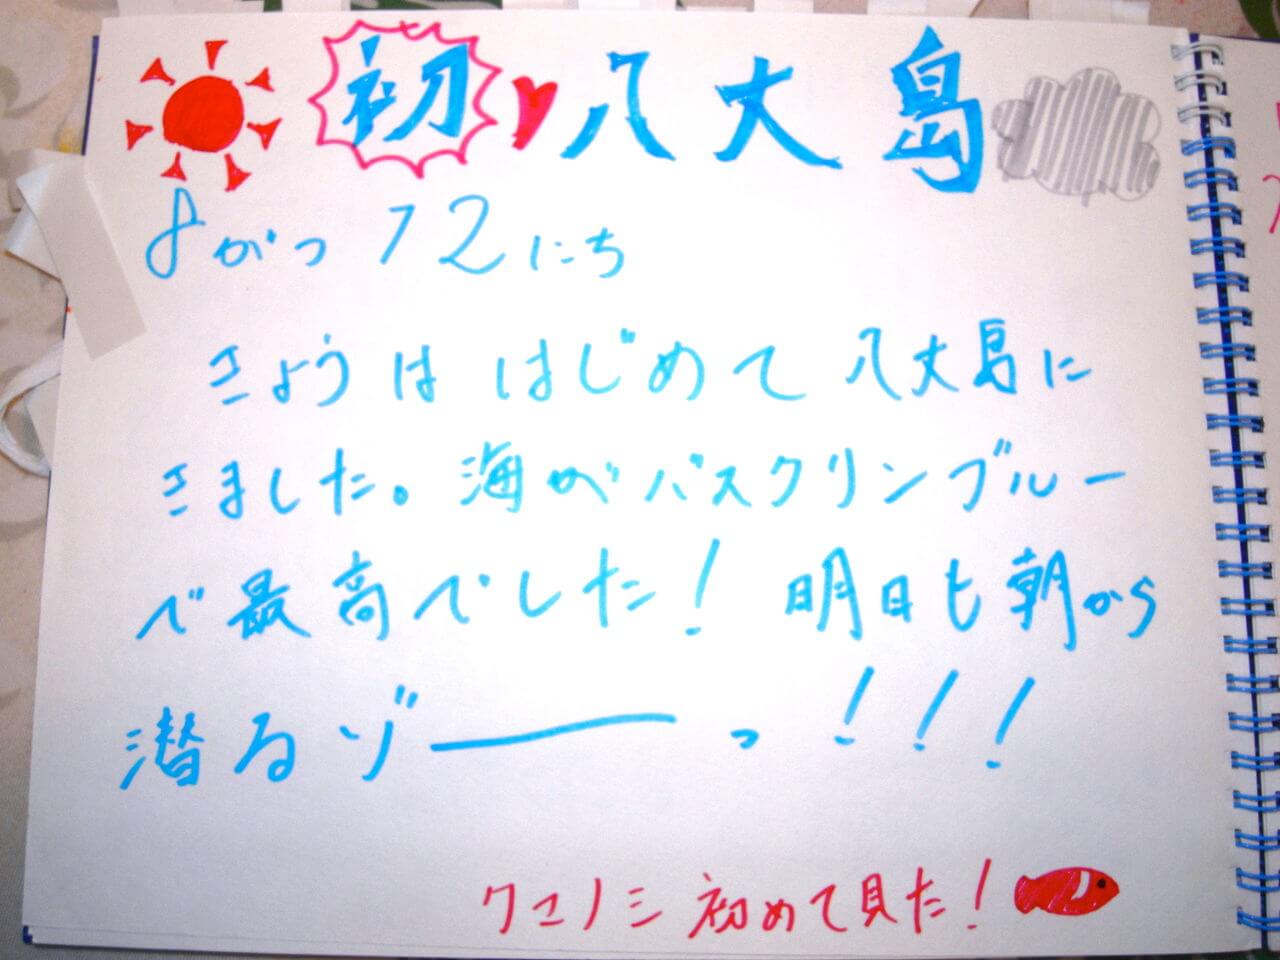 初♥八丈島
8がつ12にち
きょうは はじめて 八丈島に
きました。海がバスクリンブルー
で最高でした！明日も朝から
潜るゾーっ！！！
クマノミ初めて見た！